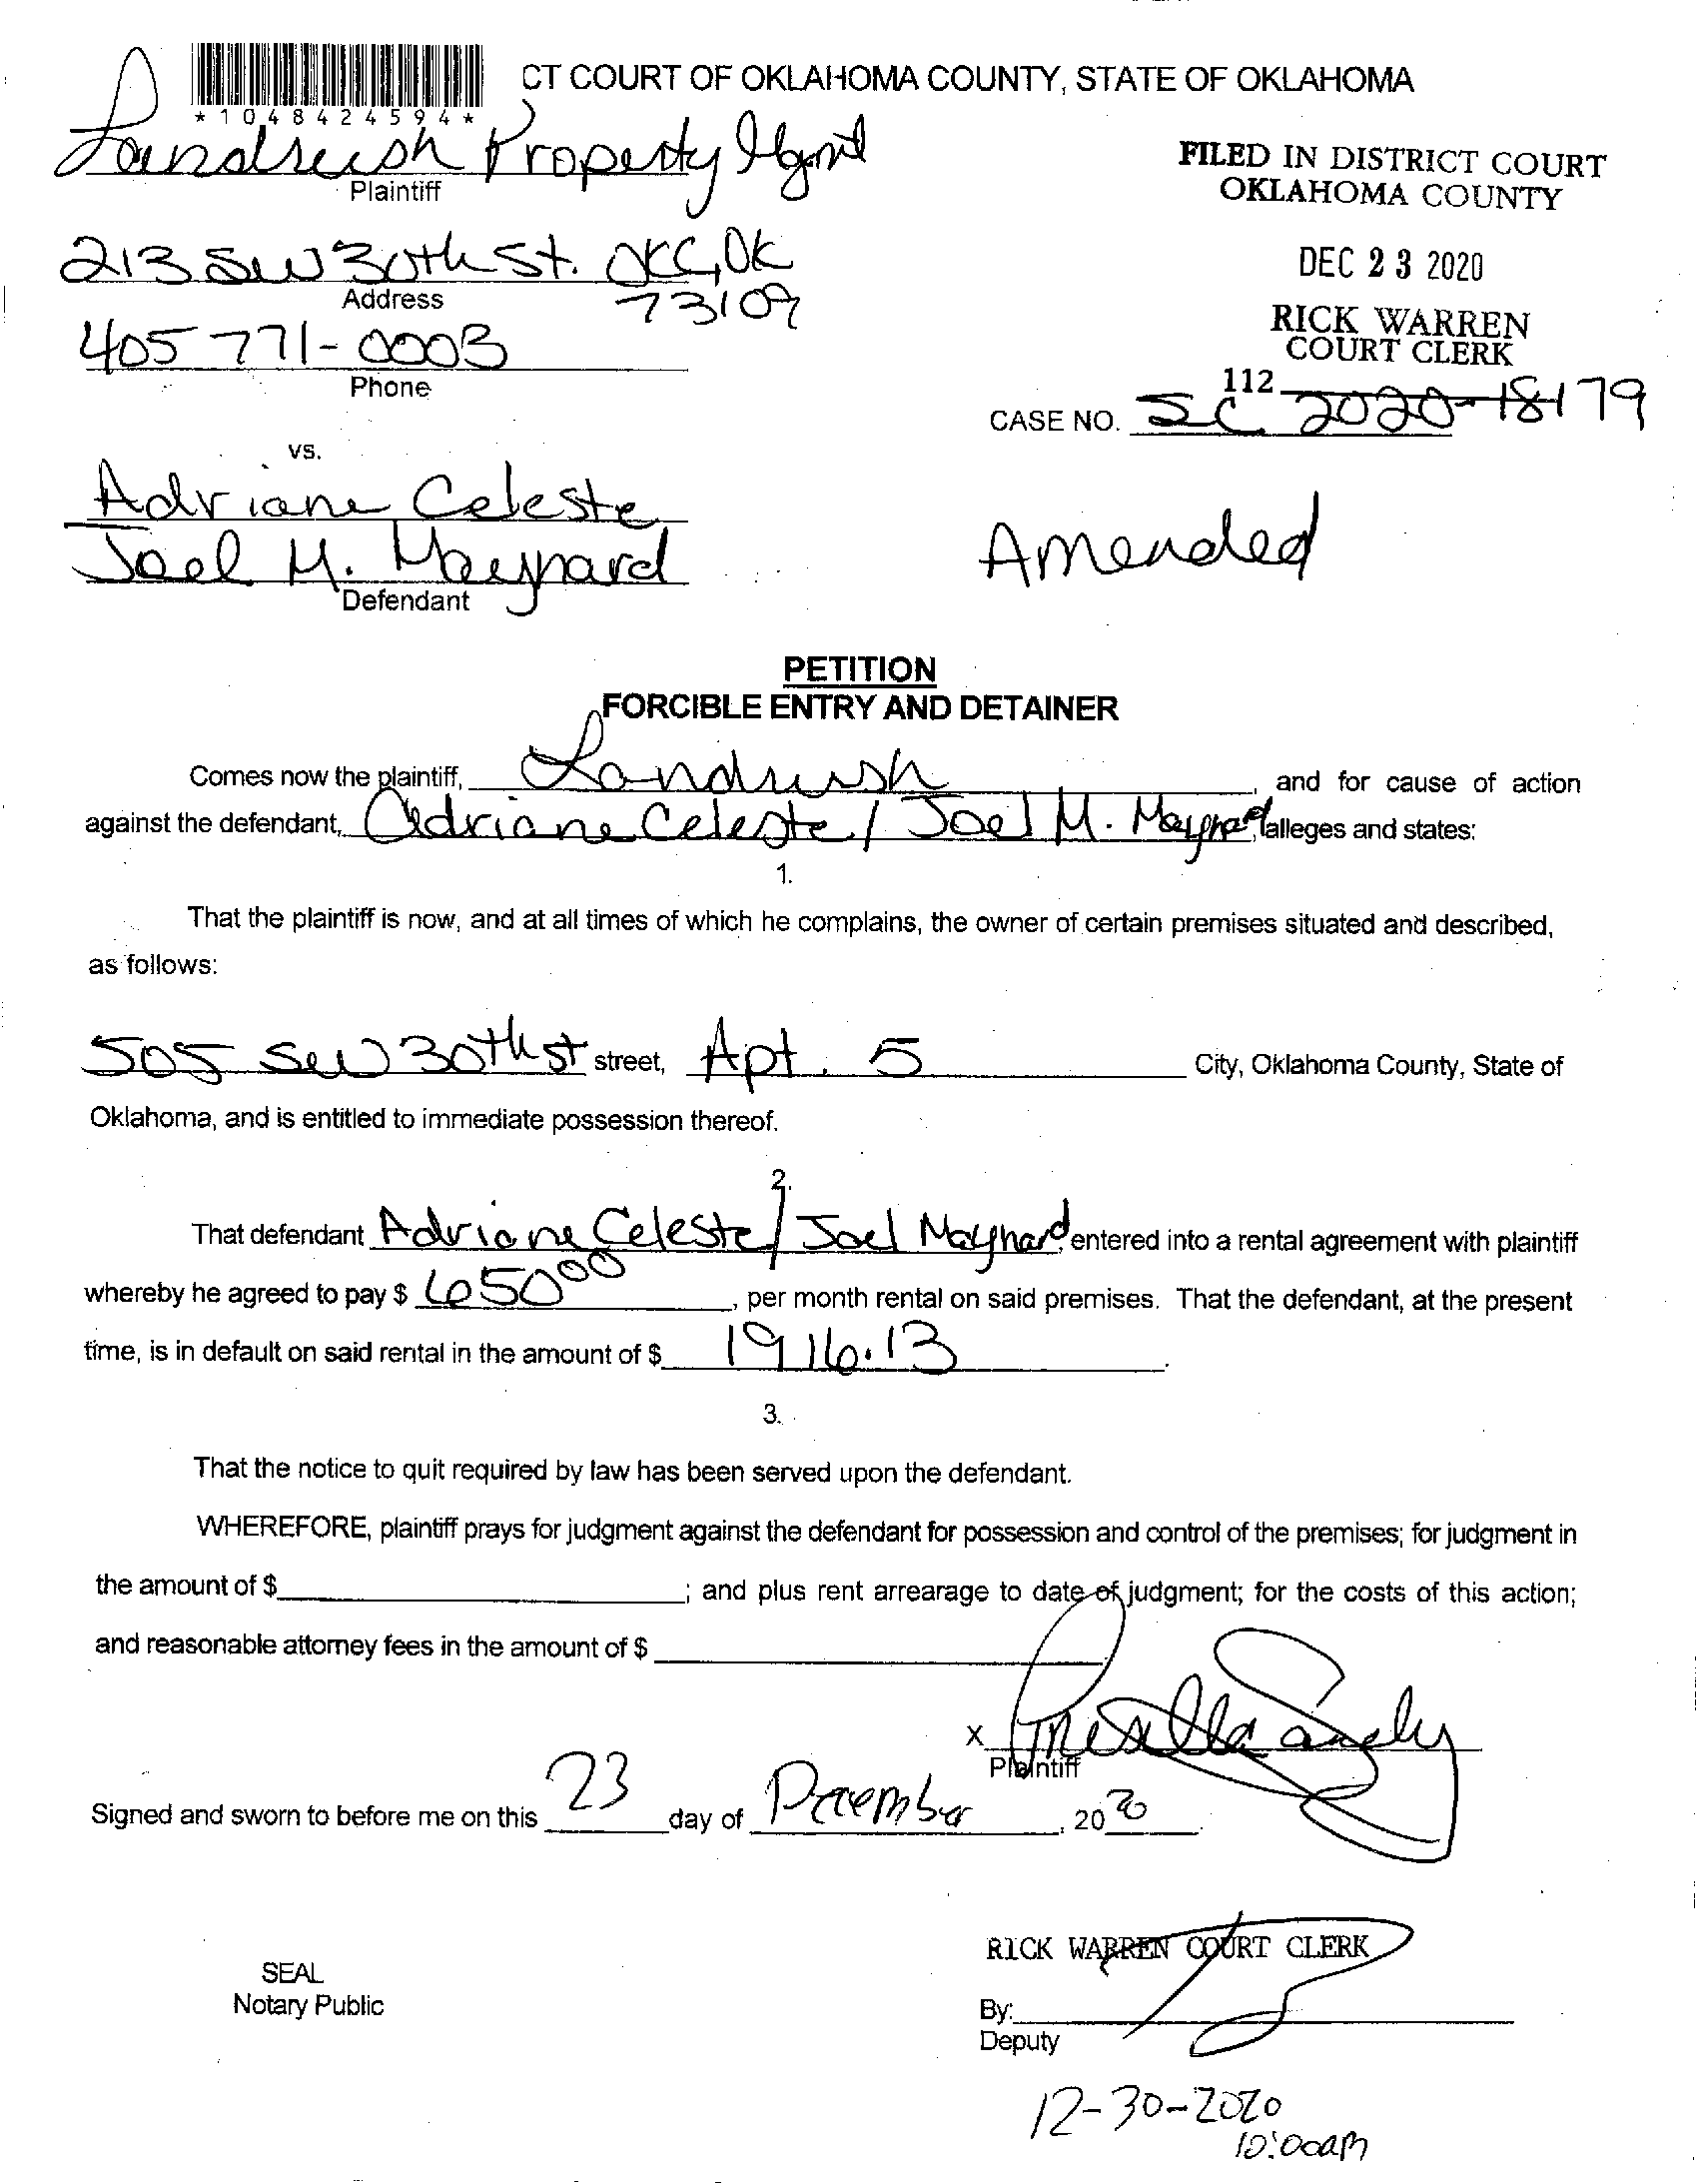 CT COURT OF OKLAHOMA COUNTY, STATE OF OKLAHOMA
*1048424594*
Landrush Property Mgmt
Plaintiff
FILED IN DISTRICT COURT
OKLAHOMA COUNTY
213 SW 30th St. OKC, OK
Address
73109
DEC 23 2020
405 771-0003
Phone
RICK WARREN
COURT CLERK
112
CASE NO. SC 2020-18179
vs.
Adriane Celeste
Joel M. Maynard
Defendant
Amended
PETITION
FORCIBLE ENTRY AND DETAINER
Comes now the plaintiff, Landrush, and for cause of action
against the defendant, Adriane Celeste / Joel M. Maynard, alleges and states:
1.
That the plaintiff is now, and at all times of which he complains, the owner of certain premises situated and described,
as follows:
505 SW 30th st street, Apt. 5 City, Oklahoma County, State of
Oklahoma, and is entitled to immediate possession thereof.
2.
That defendant Adriane Celeste / Joel Maynard, entered into a rental agreement with plaintiff
whereby he agreed to pay $ 650 00, per month rental on said premises. That the defendant, at the present
time, is in default on said rental in the amount of $ 1916.13.
3.
That the notice to quit required by law has been served upon the defendant.
WHEREFORE, plaintiff prays for judgment against the defendant for possession and control of the premises; for judgment in
the amount of $ ; and plus rent arrearage to date of judgment; for the costs of this action;
and reasonable attorney fees in the amount of $
X
Plaintiff
Signed and sworn to before me on this 23 day of December, 20 20.
RICK WARREN COURT CLERK
SEAL
Notary Public
By:
Deputy
12-30-2020
10:00am